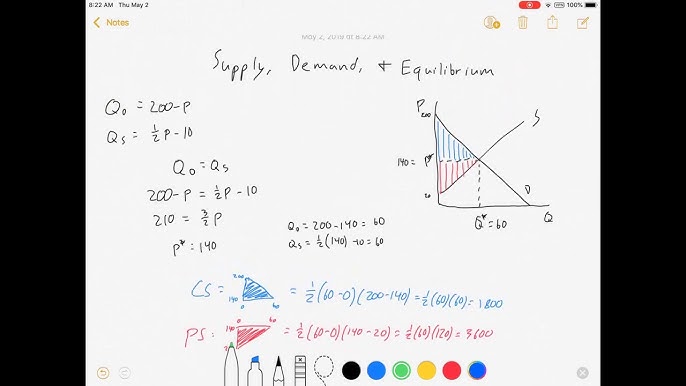 8:22 AM Thu May 2
100%
Notes
May 2, 2019 at 8:22 AM
Supply, Demand, + Equilibrium
Q_D = 200-P
Q_S = 1/2 P - 10
Q_D = Q_S
200-P = 1/2 P - 10
210 = 3/2 P
P* = 140
Q_D = 200-140 = 60
Q_S = 1/2(140) -10 = 60
P
200
S
140 = P*
20
D
Q* = 60
Q
CS = 200 140 0 60 = 1/2(60-0)(200-140) = 1/2(60)(60) = 1800
PS: 0 60 140 = 1/2(60-0)(140-20) = 1/2(60)(120) = 3600